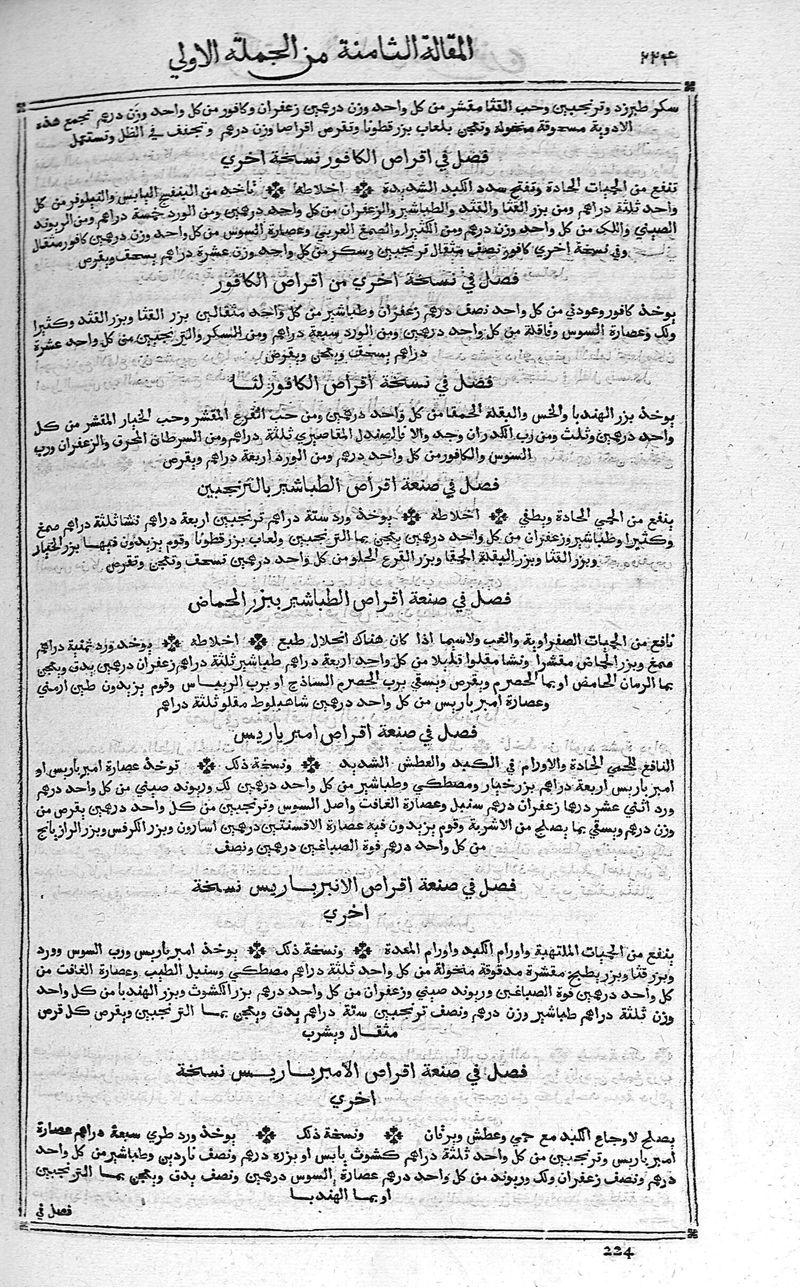 ٢٢٤
المقالة الثامنة من الجملة الاولي
سكر طبرزد وترنجبين وحب القثا مقشر من كل واحد وزن درهمين زعفران وكافور من كل واحد وزن درهم تجمع هذه
الادوية مسحوقة منخولة وتعجن بلعاب بزر قطونا وتقرص اقراصا وزن درهم وتجفف في الظل وتستعمل
فصل في اقراص الكافور نسخة اخري
تنفع من الحميات الحادة وتفتح سدد الكبد الشديدة اخلاطه تاخذ من البنفسج اليابس والنيلوفر من كل
واحد ثلثة دراهم ومن بزر القثا والقثد والطباشير والزعفران من كل واحد درهمين ومن الورد خمسة دراهم ومن الريوند
الصيني واللك من كل واحد وزن درهم ومن الكثيرا والصمغ العربي وعصارة السوس من كل واحد وزن درهمين كافور مثقال
وفي نسخة اخري كافور نصف مثقال ترنجبين وسكر من كل واحد وزن عشرة دراهم يسحف ويقرص
فصل في نسخة اخري من اقراص الكافور
يوخذ كافور وعود ني من كل واحد نصف درهم زعفران وطباشير من كل واحد مثقالين بزر القثا وبزر القثد وكثيرا
ولك وعصارة السوس وناقلة من كل واحد درهمين ومن الورد سبعة دراهم ومن السكر والترنجبين من كل واحد عشرة
دراهم يسحف ويعجن ويقرص
فصل في نسخة اقراص الكافور لنا
يوخذ بزر الهندبا والخس والبقلة الحمقا من كل واحد درهمين ومن حب القرع المقشر وحب الخيار المقشر من كل
واحد درهمين وثلث ومن رب الكدران وجد والا فالصندل المقاصيري ثلثة دراهم ومن السرطان المحرق والزعفران ورب
السوس والكافور من كل واحد درهم ومن الورد اربعة دراهم ويقرص
فصل في صنعة اقراص الطباشير بالترنجبين
ينفع من الحمي الحادة ويطفي اخلاطه يوخذ ورد ستة دراهم ترنجبين اربعة دراهم نشا ثلثة دراهم صمغ
وكثيرا وطباشير وزعفران من كل واحد درهمين يعجن بما الترنجبين ولعاب بزر قطونا وقوم يزيدون فيها بزر الخيار
وبزر القثا وبزر البقلة الحمقا وبزر القرع الحلو من كل واحد درهمين تسحف وتعجن وتقرص
فصل في صنعة اقراص الطباشير ببزر الحماض
نافع من الحميات الصفراوية والغب ولاسيما اذا كان هناك انحلال طبع اخلاطه يوخذ ورد ثمنية دراهم
صمغ وبزر الحماض مقشرا ونشا مقلوا قليلا من كل واحد اربعة دراهم طباشير ثلثة دراهم زعفران درهمين يدق ويعجن
بما الرمان الحامض او بما الحصرم ويقرص ويسقي برب الحصرم الساذج او برب الريباس وقوم يزيدون طين ارمني
وعصارة امير باريس من كل واحد درهمين شاهبلوط مقلو ثلثة دراهم
فصل في صنعة اقراص امير باريس
النافع للحمي الحادة والاورام في الكبد والعطش الشديد ونسخة ذلك توخذ عصارة امير باريس او
امير باريس اربعة دراهم بزر خيار ومصطكي وطباشير من كل واحد درهمين لك وريوند صيني من كل واحد درهم
ورد اثني عشر درهما زعفران درهم سنبل وعصارة الغافت واصل السوس وترنجبين من كل واحد درهمين يقرص من
وزن درهم ويسقي بما يصلح من الاشربة وقوم يزيدون فيه عصارة الافسنتين درهمين اسارون وبزر الكرفس وبزر الرازيانج
من كل واحد درهم فوة الصباغين درهمين ونصف
فصل في صنعة اقراص الانبرباريس نسخة
اخري
ينفع من الحميات الملتهبة واورام الكبد واورام المعدة ونسخة ذلك يوخذ امير باريس ورب السوس وورد
وبزر قثا وبزر بطيخ مقشرة مدقوقة منخولة من كل واحد ثلثة دراهم مصطكي وسنبل الطيب وعصارة الغافت من
كل واحد درهمين فوة الصباغين وريوند صيني وزعفران من كل واحد درهم بزر الكشوث وبزر الهندبا من كل واحد
وزن ثلثة دراهم طباشير وزن درهم ونصف ترنجبين ستة دراهم يدق ويعجن بما الترنجبين ويقرص كل قرص
مثقال ويشرب
فصل في صنعة اقراص الامبرباريس نسخة
اخري
يصلح لاوجاع الكبد مع حمي وعطش ويرقان ونسخة ذلك يوخذ ورد طري سبعة دراهم عصارة
امير باريس وترنجبين من كل واحد ثلثة دراهم كشوث يابس او بزره درهم ونصف ناردين وطباشير من كل واحد
درهم ونصف زعفران ولك وريوند من كل واحد درهم عصارة السوس درهمين ونصف يدق ويعجن بما الترنجبين
او بما الهندبا
فصل في
224